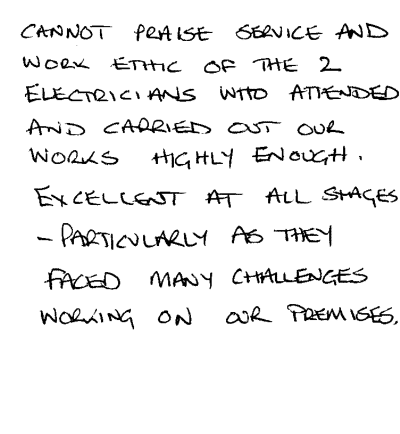 CANNOT PRAISE SERVICE AND
WORK ETHIC OF THE 2
ELECTRICIANS WHO ATTENDED
AND CARRIED OUT OUR
WORKS HIGHLY ENOUGH.
EXCELLENT AT ALL STAGES
- PARTICULARLY AS THEY
FACED MANY CHALLENGES
WORKING ON OUR PREMISES.